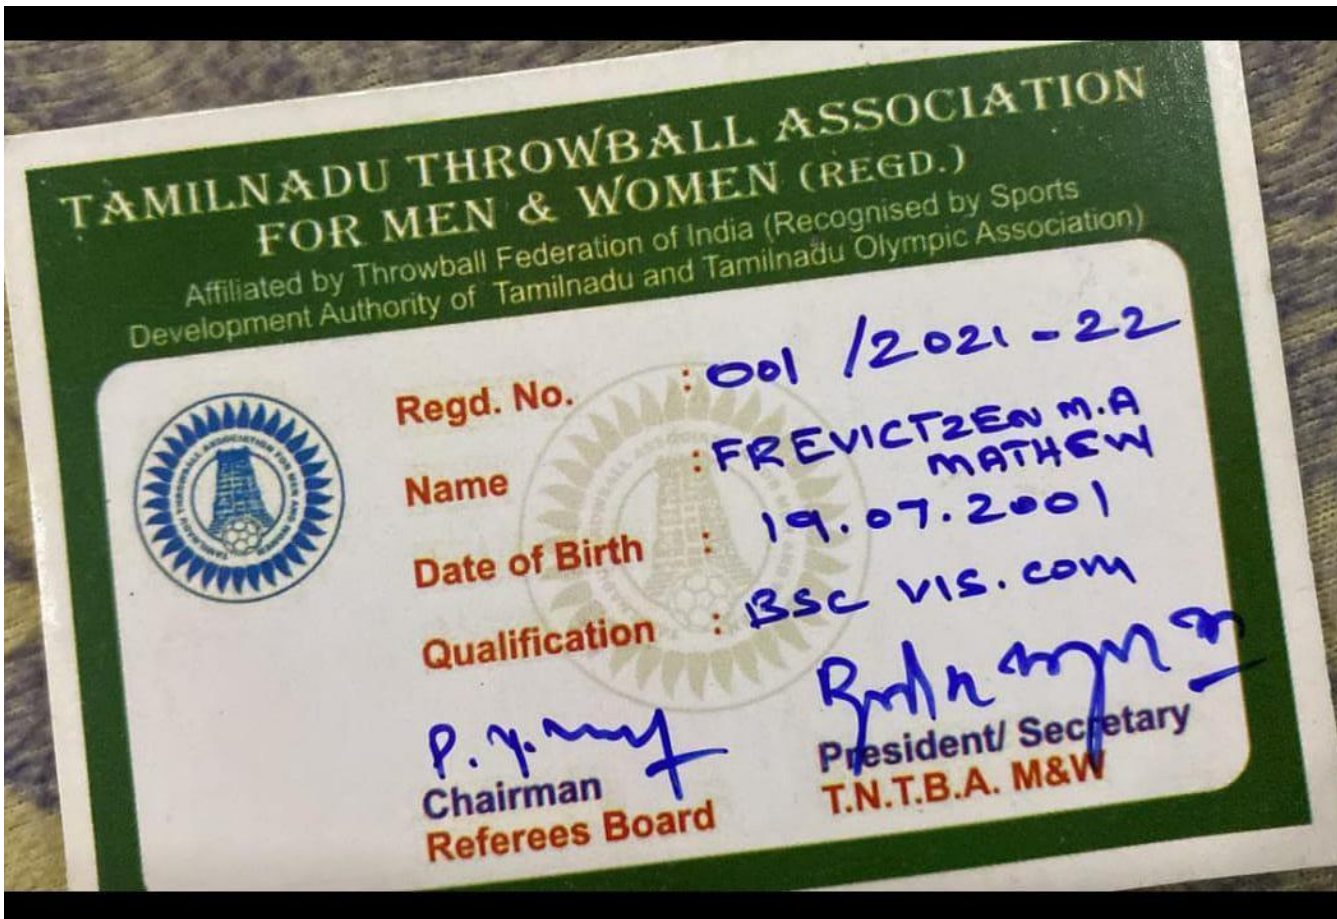 TAMILNADU THROWBALL ASSOCIATION
FOR MEN & WOMEN (REGD.)
Affiliated by Throwball Federation of India (Recognised by Sports
Development Authority of Tamilnadu and Tamilnadu Olympic Association)
Regd. No. : 001 /2021-22
Name : FREVICTZEN M.A
MATHEW
Date of Birth : 19.07.2001
Qualification : BSC VIS. COM
Chairman
Referees Board
President/ Secretary
T.N.T.B.A. M&W